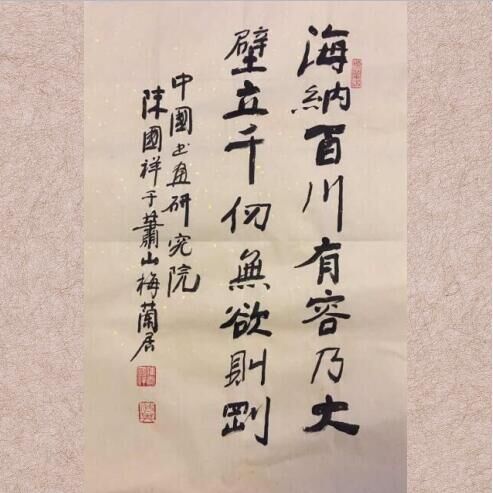 海納百川有容乃大
壁立千仞無欲則剛
中國书画研究院
陳國祥于蕭山梅蘭居